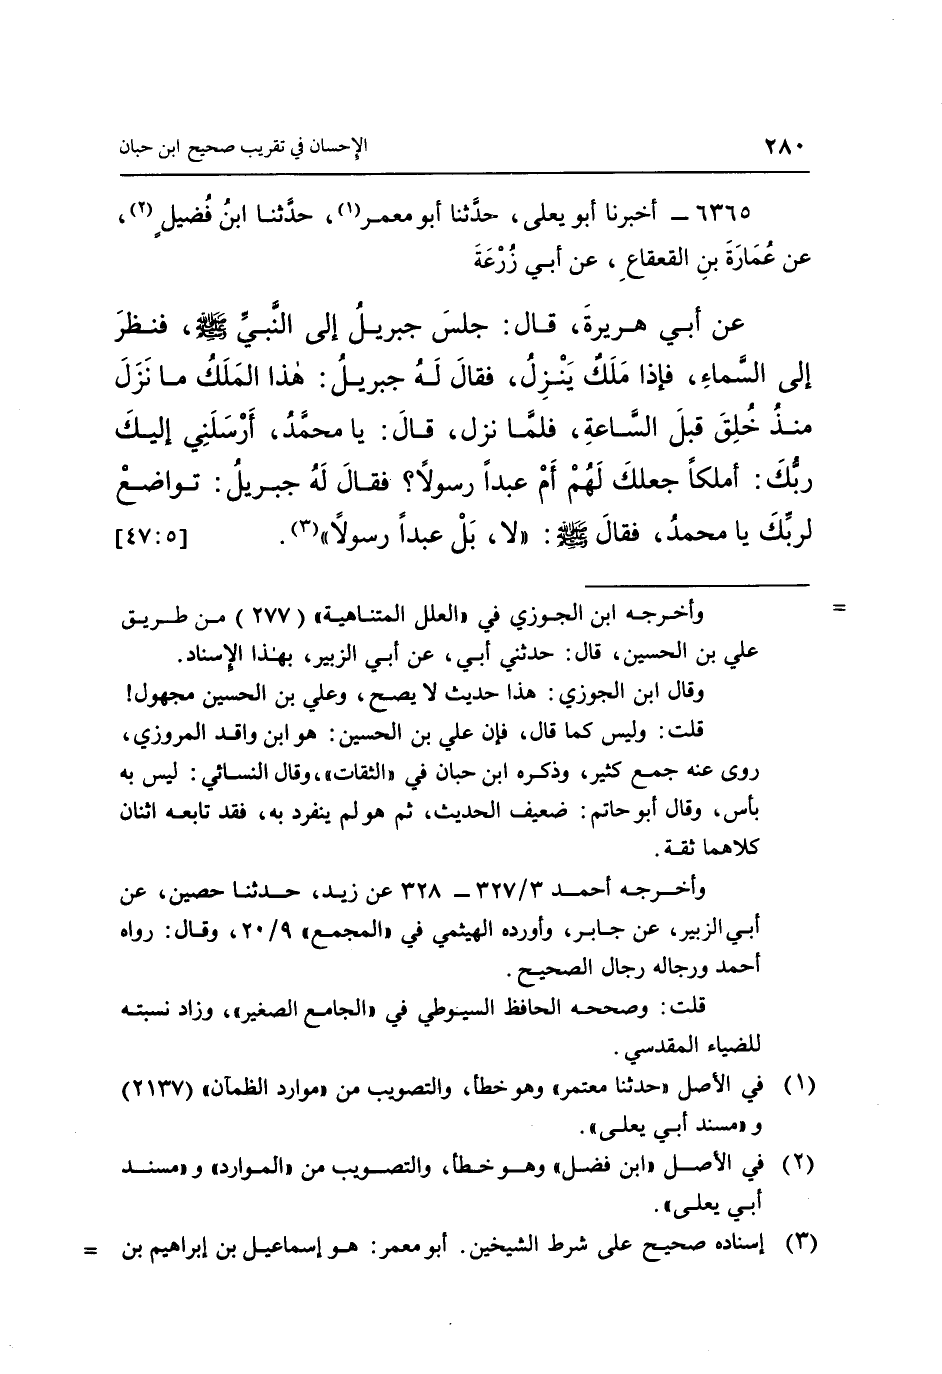 ٢٨٠ الإحسان في تقريب صحيح ابن حبان
٦٣٦٥ ــ أخبرنا أبو يعلى، حدَّثنا أبو معمر(١)، حدَّثنا ابنُ فُضيلٍ(٢)،
عن عُمَارَةَ بنِ القعقاعِ، عن أبي زُرْعَةَ
عن أبي هريرةَ، قال: جلسَ جبريلُ إلى النَّبيِّ ﷺ، فنظرَ
إلى السَّماءِ، فإذا مَلَكٌ يَنْزِلُ، فقالَ لَهُ جبريلُ: هٰذا المَلَكُ ما نَزَلَ
منذُ خُلِقَ قبلَ السَّاعةِ، فلمَّا نزل، قالَ: يا محمَّدُ، أَرْسَلَنِي إليكَ
ربُّكَ: أملكاً جعلكَ لَهُمْ أَمْ عبداً رسولًا؟ فقالَ لَهُ جبريلُ: تواضعْ
لربِّكَ يا محمدُ، فقالَ ﷺ: «لا، بَلْ عبداً رسولًا»(٣). [٥:٤٧]
= وأخرجه ابن الجوزي في «العلل المتناهية» (٢٧٧) من طريق
علي بن الحسين، قال: حدثني أبي، عن أبي الزبير، بهٰذا الإسناد.
وقال ابن الجوزي: هذا حديث لا يصح، وعلي بن الحسين مجهول!
قلت: وليس كما قال، فإن علي بن الحسين: هو ابن واقد المروزي،
روى عنه جمع كثير، وذكره ابن حبان في «الثقات»، وقال النسائي: ليس به
بأس، وقال أبو حاتم: ضعيف الحديث، ثم هو لم ينفرد به، فقد تابعه اثنان
كلاهما ثقة.
وأخرجه أحمد ٣٢٧/٣ ــ ٣٢٨ عن زيد، حدثنا حصين، عن
أبي الزبير، عن جابر، وأورده الهيثمي في «المجمع» ٢٠/٩، وقال: رواه
أحمد ورجاله رجال الصحيح.
قلت: وصححه الحافظ السيوطي في «الجامع الصغير»، وزاد نسبته
للضياء المقدسي.
(١) في الأصل «حدثنا معتمر» وهو خطأ، والتصويب من «موارد الظمآن» (٢١٣٧)
و«مسند أبي يعلى».
(٢) في الأصل «ابن فضل» وهو خطأ، والتصويب من «الموارد» و«مسند
أبي يعلى».
(٣) إسناده صحيح على شرط الشيخين. أبو معمر: هو إسماعيل بن إبراهيم بن =